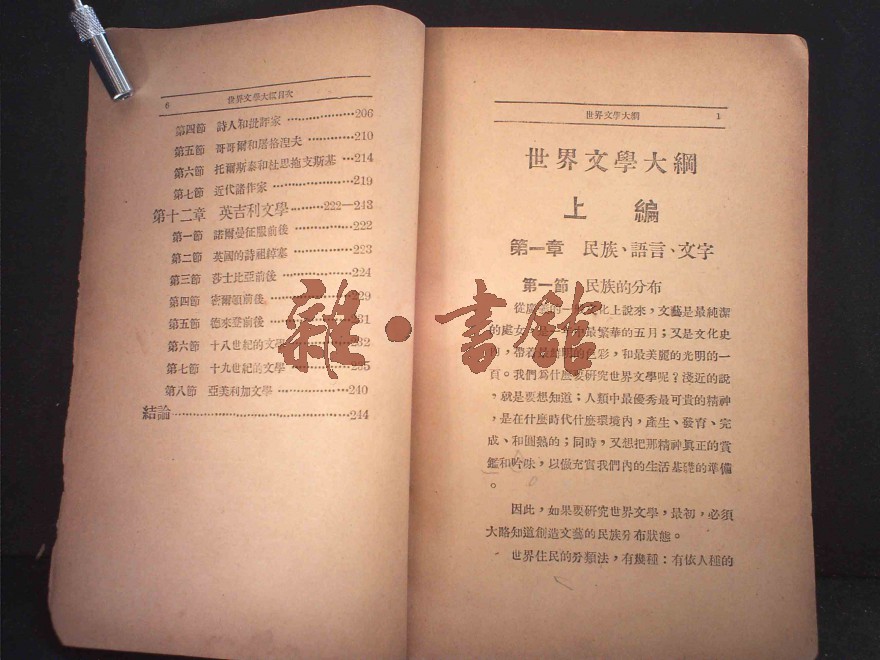 6 世界文學大綱目次
第四節 詩人和批評家 ··················206
第五節 哥哥爾和屠格涅夫 ············210
第六節 托爾斯泰和杜思拖支斯基 ···214
第七節 近代諸作家 ·····················219
第十二章 英吉利文學·········222—243
第一節 諾爾曼征服前後 ···············222
第二節 英國的詩祖綽塞 ···············223
第三節 莎士比亞前後 ··················224
第四節 密爾頓前後 229
第五節 德來登前後 231
第六節 十八世紀的文學 232
第七節 十九世紀的文學 235
第八節 亞美利加文學 ··················240
結論 ·······································244
世界文學大綱 1
世界文學大綱
上 編
第一章 民族、語言、文字
第一節 民族的分布
從廣義的一般文化上說來,文藝是最純潔
的處女 最繁華的五月;又是文化史
帶着最鮮明的色彩,和最美麗的光明的一
頁。我們爲什麼要硏究世界文學呢?淺近的說
,就是要想知道;人類中最優秀最可貴的精神
,是在什麼時代什麼環境內,產生、發育、完
成、和圓熟的;同時,又想把那精神眞正的賞
鑑和吟味,以做充實我們內的生活基礎的準備
。
因此,如果要硏究世界文學,最初,必須
大略知道創造文藝的民族分布狀態。
世界住民的分類法,有幾種:有依人種的
雜·書館